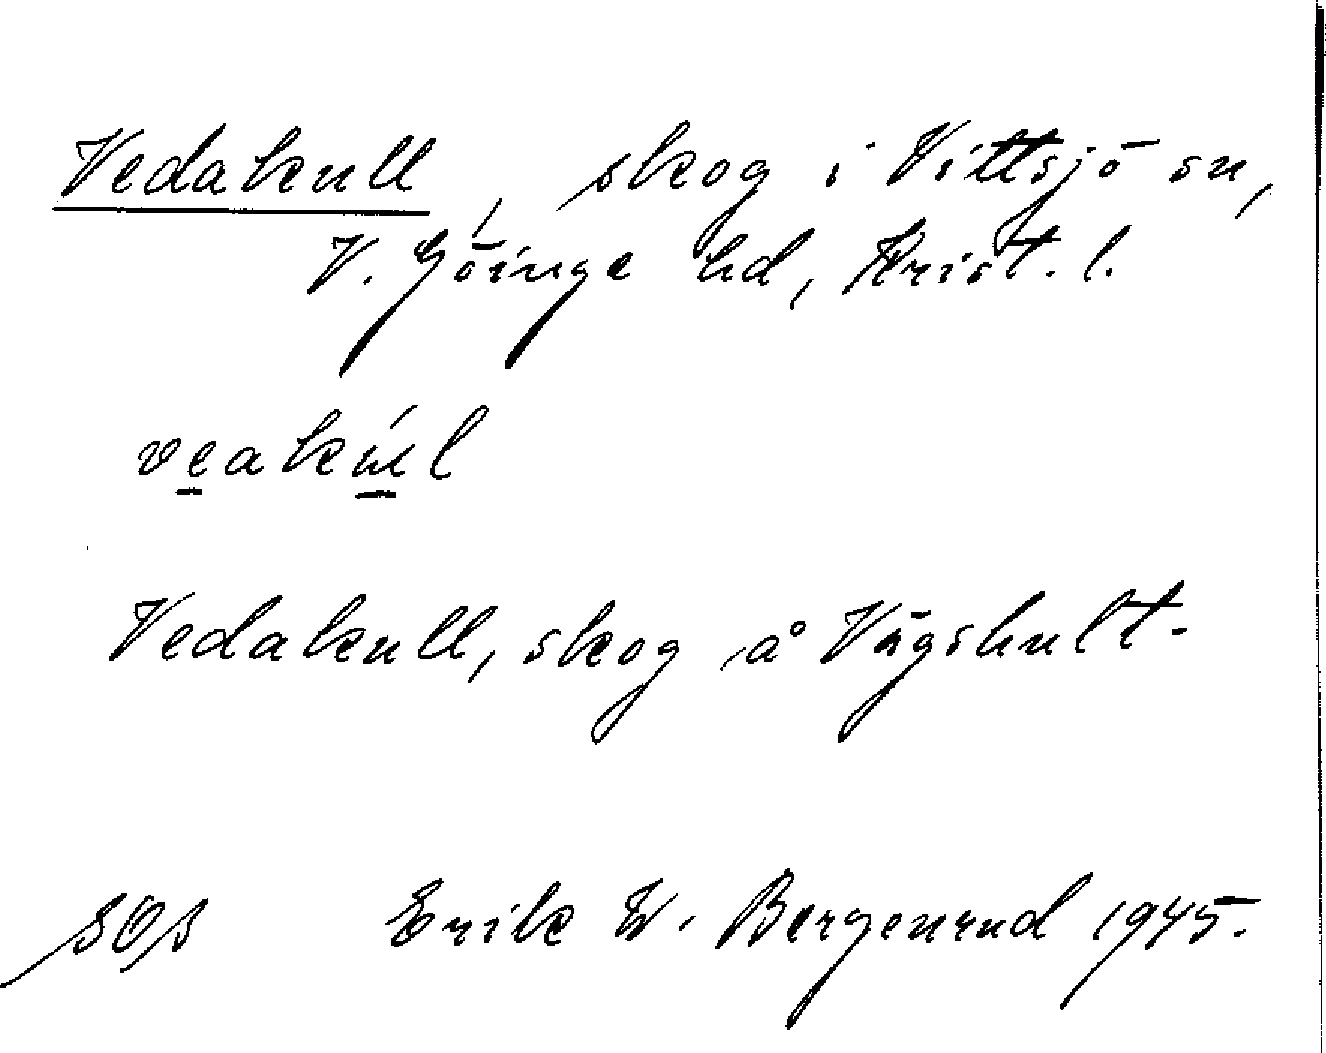 Vedakull, skog i Vittsjö sn,
V. Göinge hd, Krist. l.
veakúl
Vedakull, skog å Vägshult.
SOS Erik W. Bergenrud 1945.